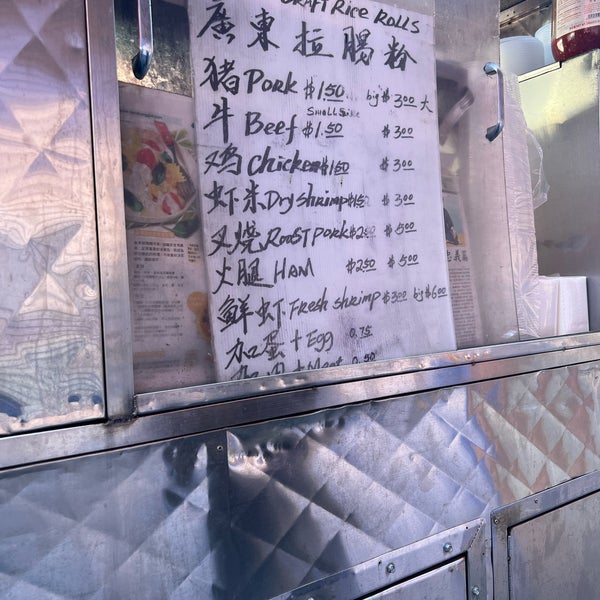 CRAFT Rice ROLLS
廣東拉腸粉
猪 Pork $1.50 big $3.00 大
Small Size
牛 Beef $1.50 $3.00
鸡 Chicken $1.50 $3.00
虾米 Dry shrimp $1.50 $3.00
叉烧 Roast Pork $2.50 $5.00
火腿 HAM $2.50 $5.00
鲜虾 Fresh shrimp $3.00 big $6.00
加蛋 + Egg 0.75
加肉 + Meat 0.50